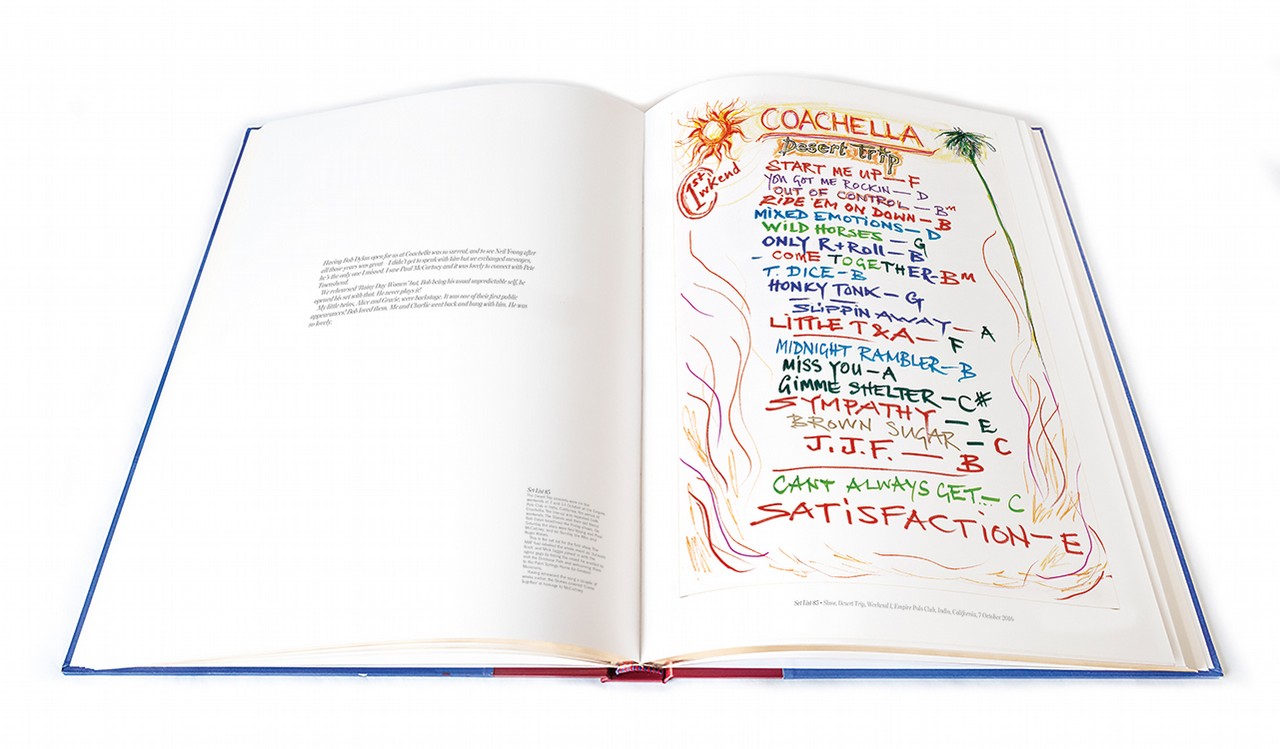 Having Bob Dylan open for us at Coachella was so surreal, and to see Neil Young after
all those years was great. I didn't get to speak with him but we exchanged messages,
he's the only one I missed. I saw Paul McCartney and it was lovely to connect with Pete
Townshend.
We rehearsed 'Rainy Day Women' but, Bob being his usual unpredictable self, he
opened his set with that. He never plays it!
My little twins, Alice and Gracie, were backstage. It was one of their first public
appearances! Bob loved them. Me and Charlie went back and hung with him. He was
so lovely.
Set List 85
COACHELLA
Desert Trip
1st wkend
START ME UP — F
YOU GOT ME ROCKIN — D
OUT OF CONTROL — Bm
RIDE 'EM ON DOWN — B
MIXED EMOTIONS — D
WILD HORSES — G
ONLY R+Roll — B
- COME TOGETHER - Bm
T. DICE - B
HONKY TONK — G
SLIPPIN AWAY — A
LITTLE T & A — F
MIDNIGHT RAMBLER — B
MISS YOU — A
GIMME SHELTER — C#
SYMPATHY — E
BROWN SUGAR — C
J.J.F. — B
CANT ALWAYS GET... — C
SATISFACTION — E
Set List 85 • Show, Desert Trip, Weekend 1, Empire Polo Club, Indio, California, 7 October 2016